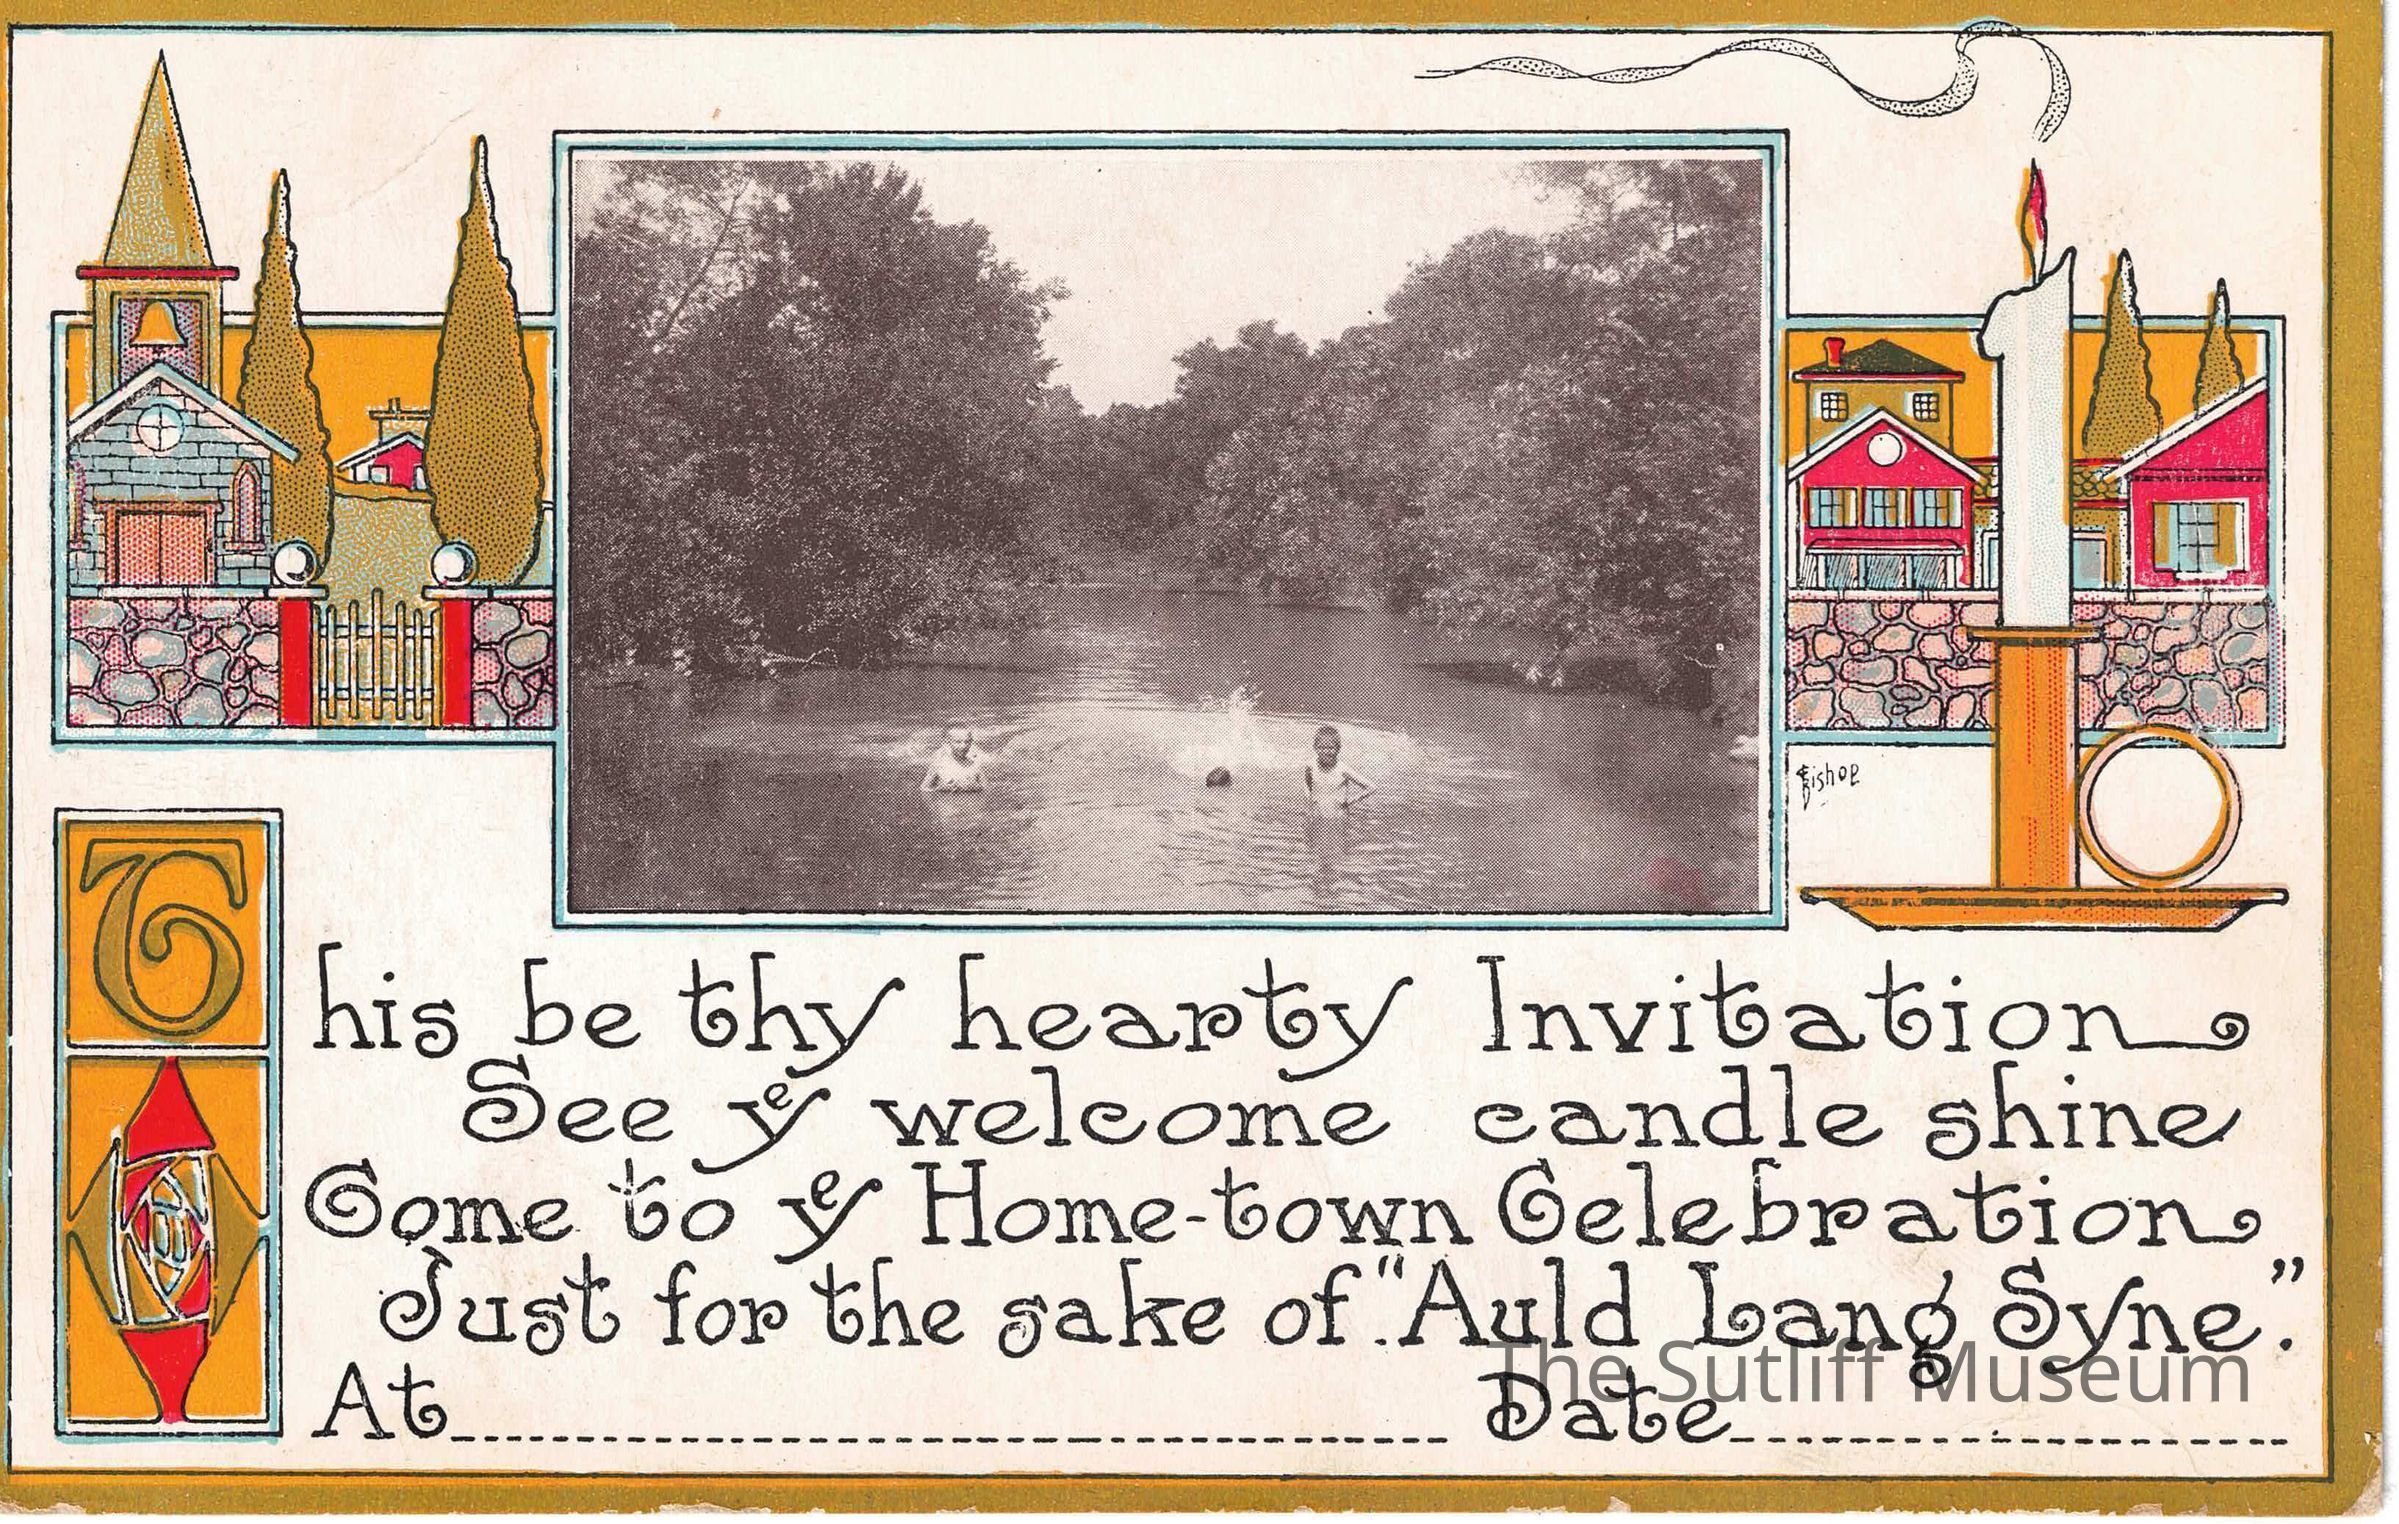 Bishop
This be thy hearty Invitation
See yͤ welcome candle shine
Come to yͤ Home-town Celebration
Just for the sake of "Auld Lang Syne."
The Sutliff Museum
At Date